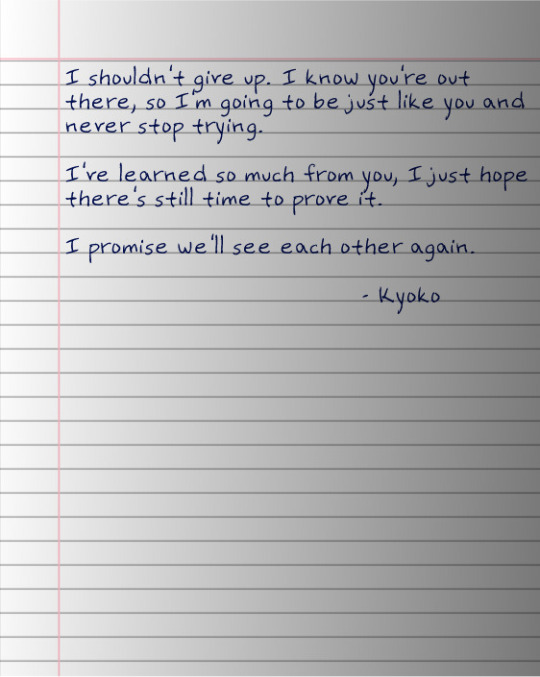 I shouldn't give up. I know you're out
there, so I'm going to be just like you and
never stop trying.
I've learned so much from you, I just hope
there's still time to prove it.
I promise we'll see each other again.
- Kyoko